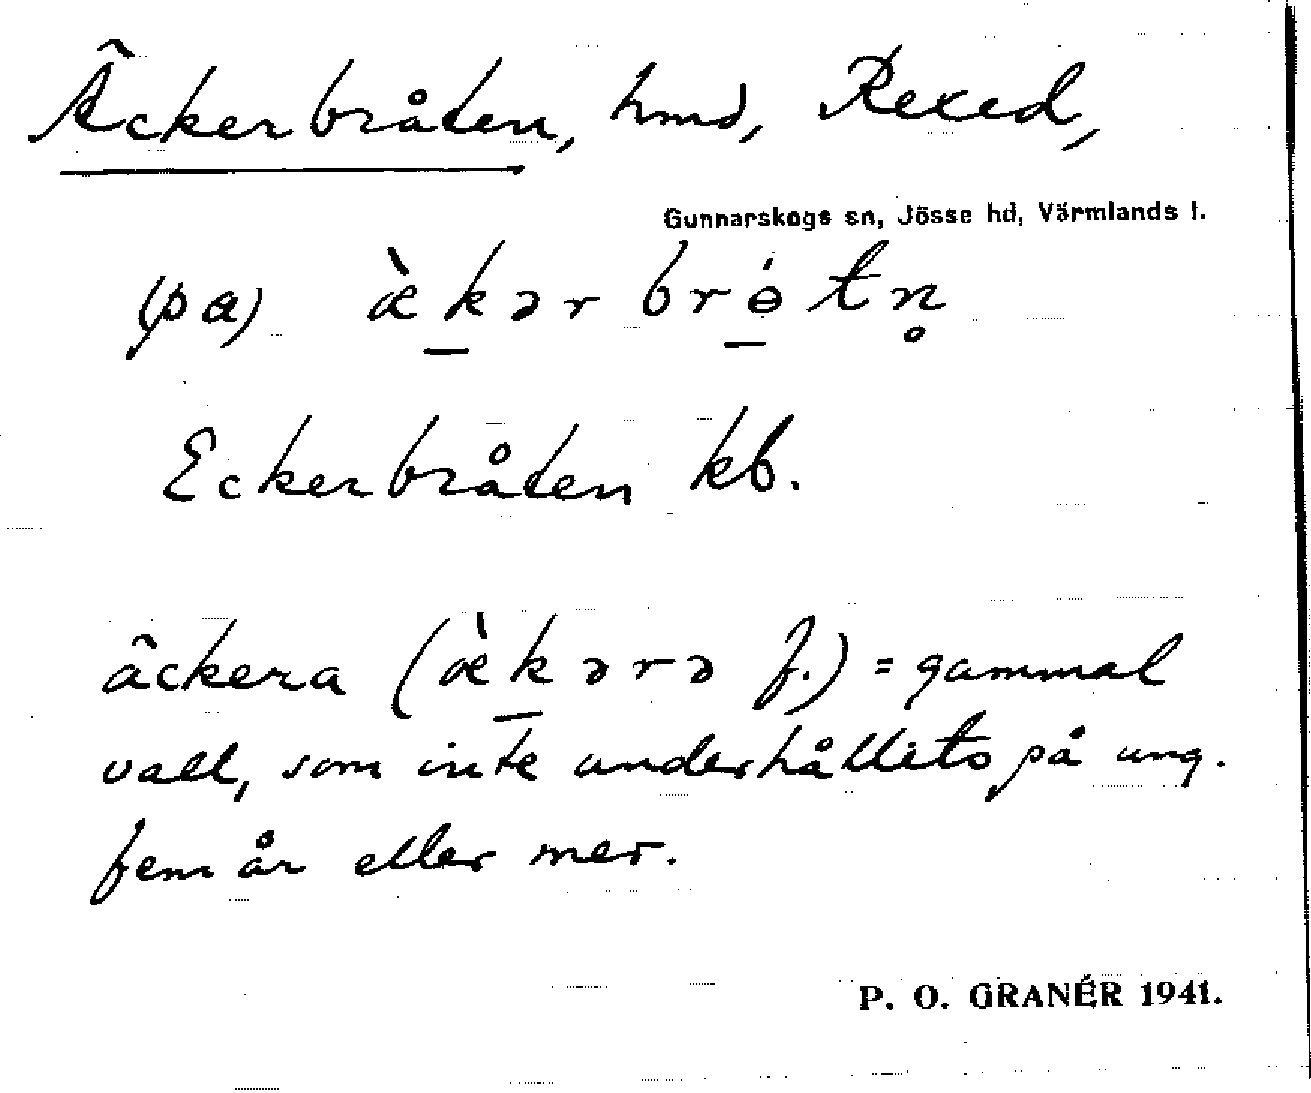 Äckerbråten, hmd, Rexed,
Gunnarskogs sn, Jösse hd, Värmlands l.
(pα) æ̀k̲ər brɵ̲́tn̥
Eckerbråten kb.
äckera (æ̀k̲ərə f.) = gammal
vall, som inte underhållits på ung.
fem år eller mer.
P. O. GRANÉR 1941.